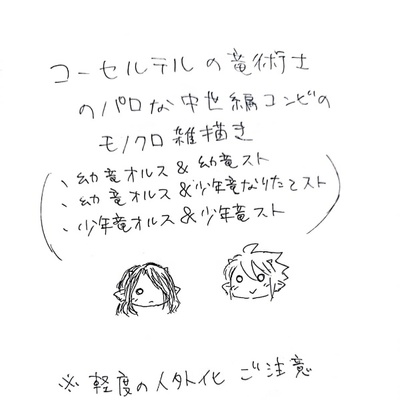 コーセルテルの竜術士
のパロな中世編コンビの
モノクロ雑描き
、幼竜オルス&幼竜スト
、幼竜オルス&少年竜なりたてスト
、少年竜オルス&少年竜スト
※ 軽度の人外化 ご注意